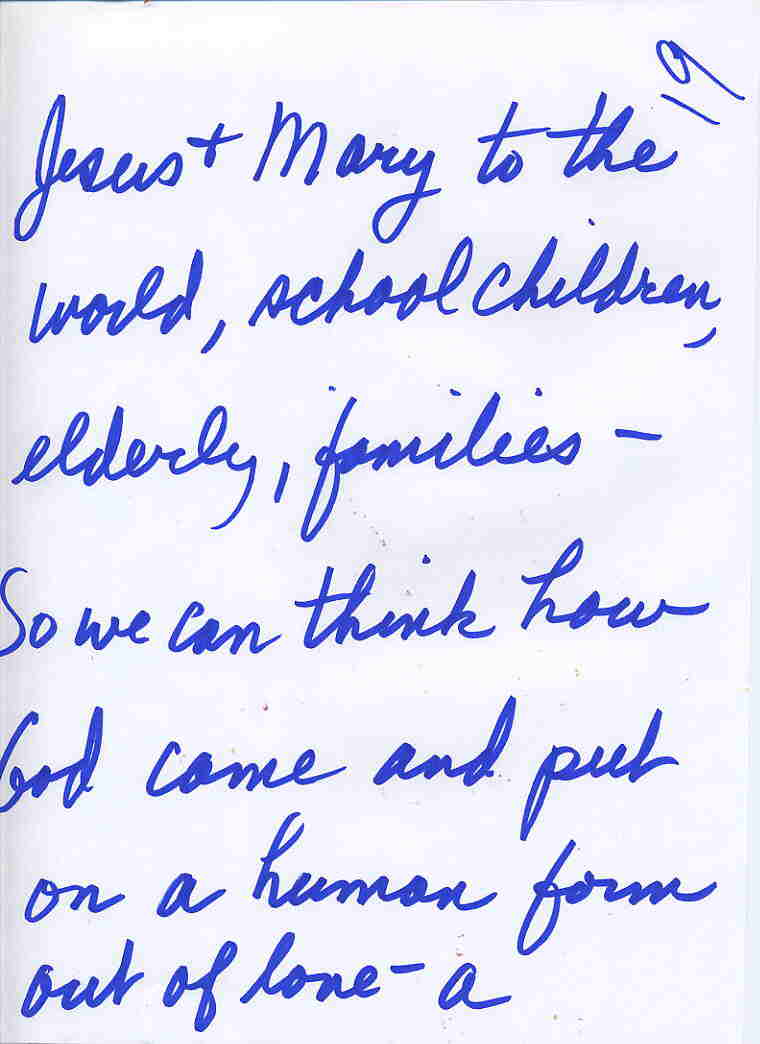 19
Jesus + Mary to the
world, school children,
elderly, families -
So we can think how
God came and put
on a human form
out of love - a